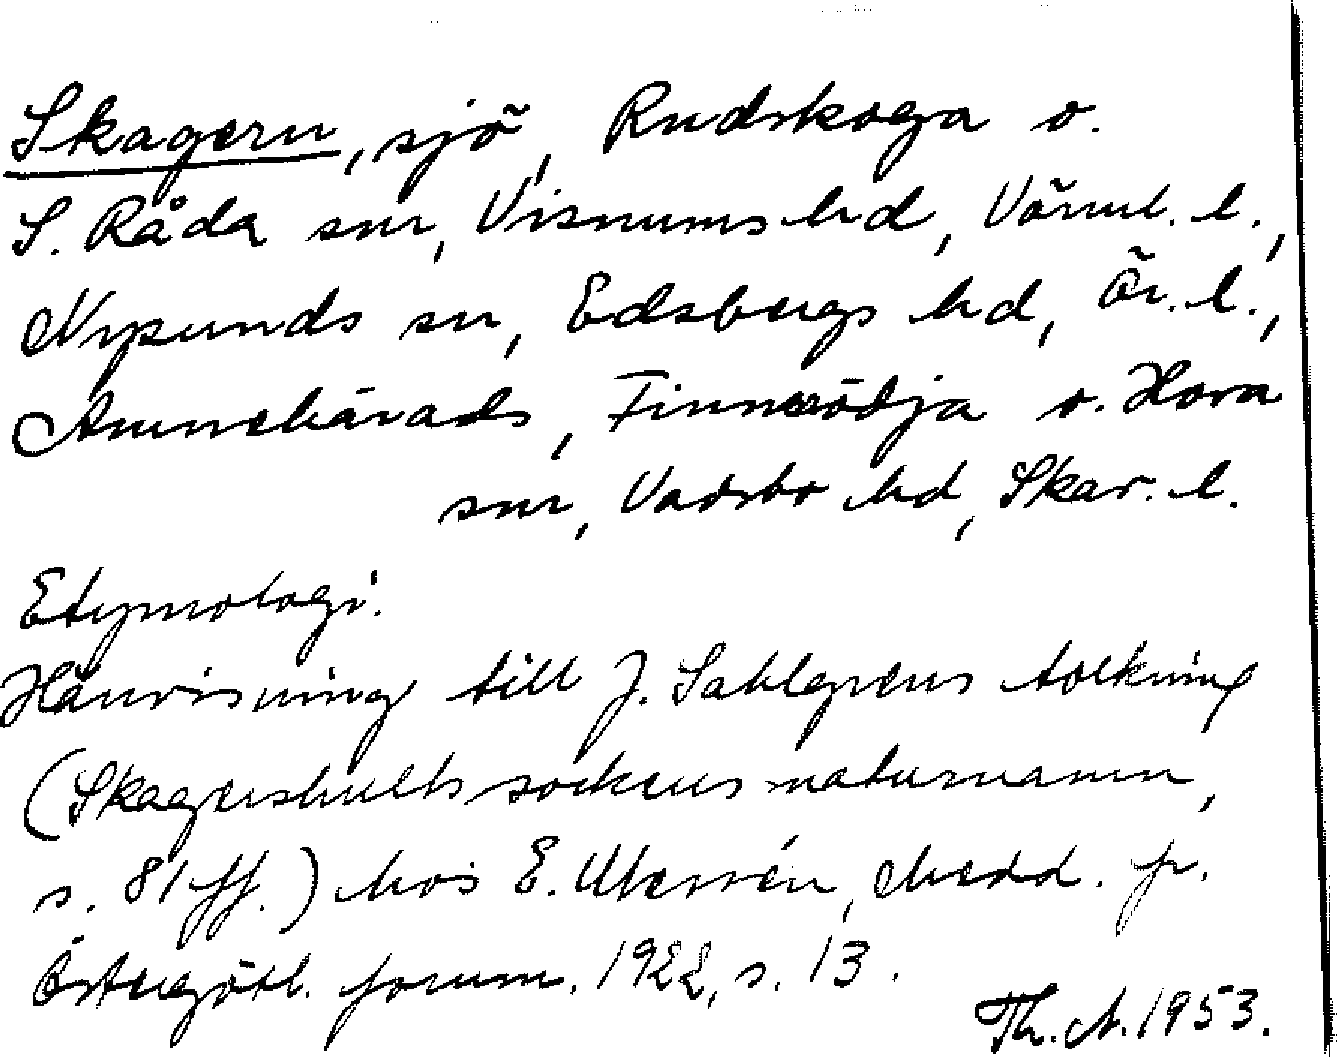 Skagern, sjö, Rudskoga o.
S. Råda snr, Visnums hd, Värml. l.,
Nysunds sn, Edsbergs hd, Ör. l.,
Amnehärads, Finnerödja o. Hova
snr, Vadsbo hd, Skar. l.
Etymologi.
Hänvisning till J. Sahlgrens tolkning
(Skagershults sockens naturnamn,
s. 81 ff.) hos E. Wessén, Medd. fr.
Östergötl. fornm. 1922, s. 13.
Th. A. 1953.